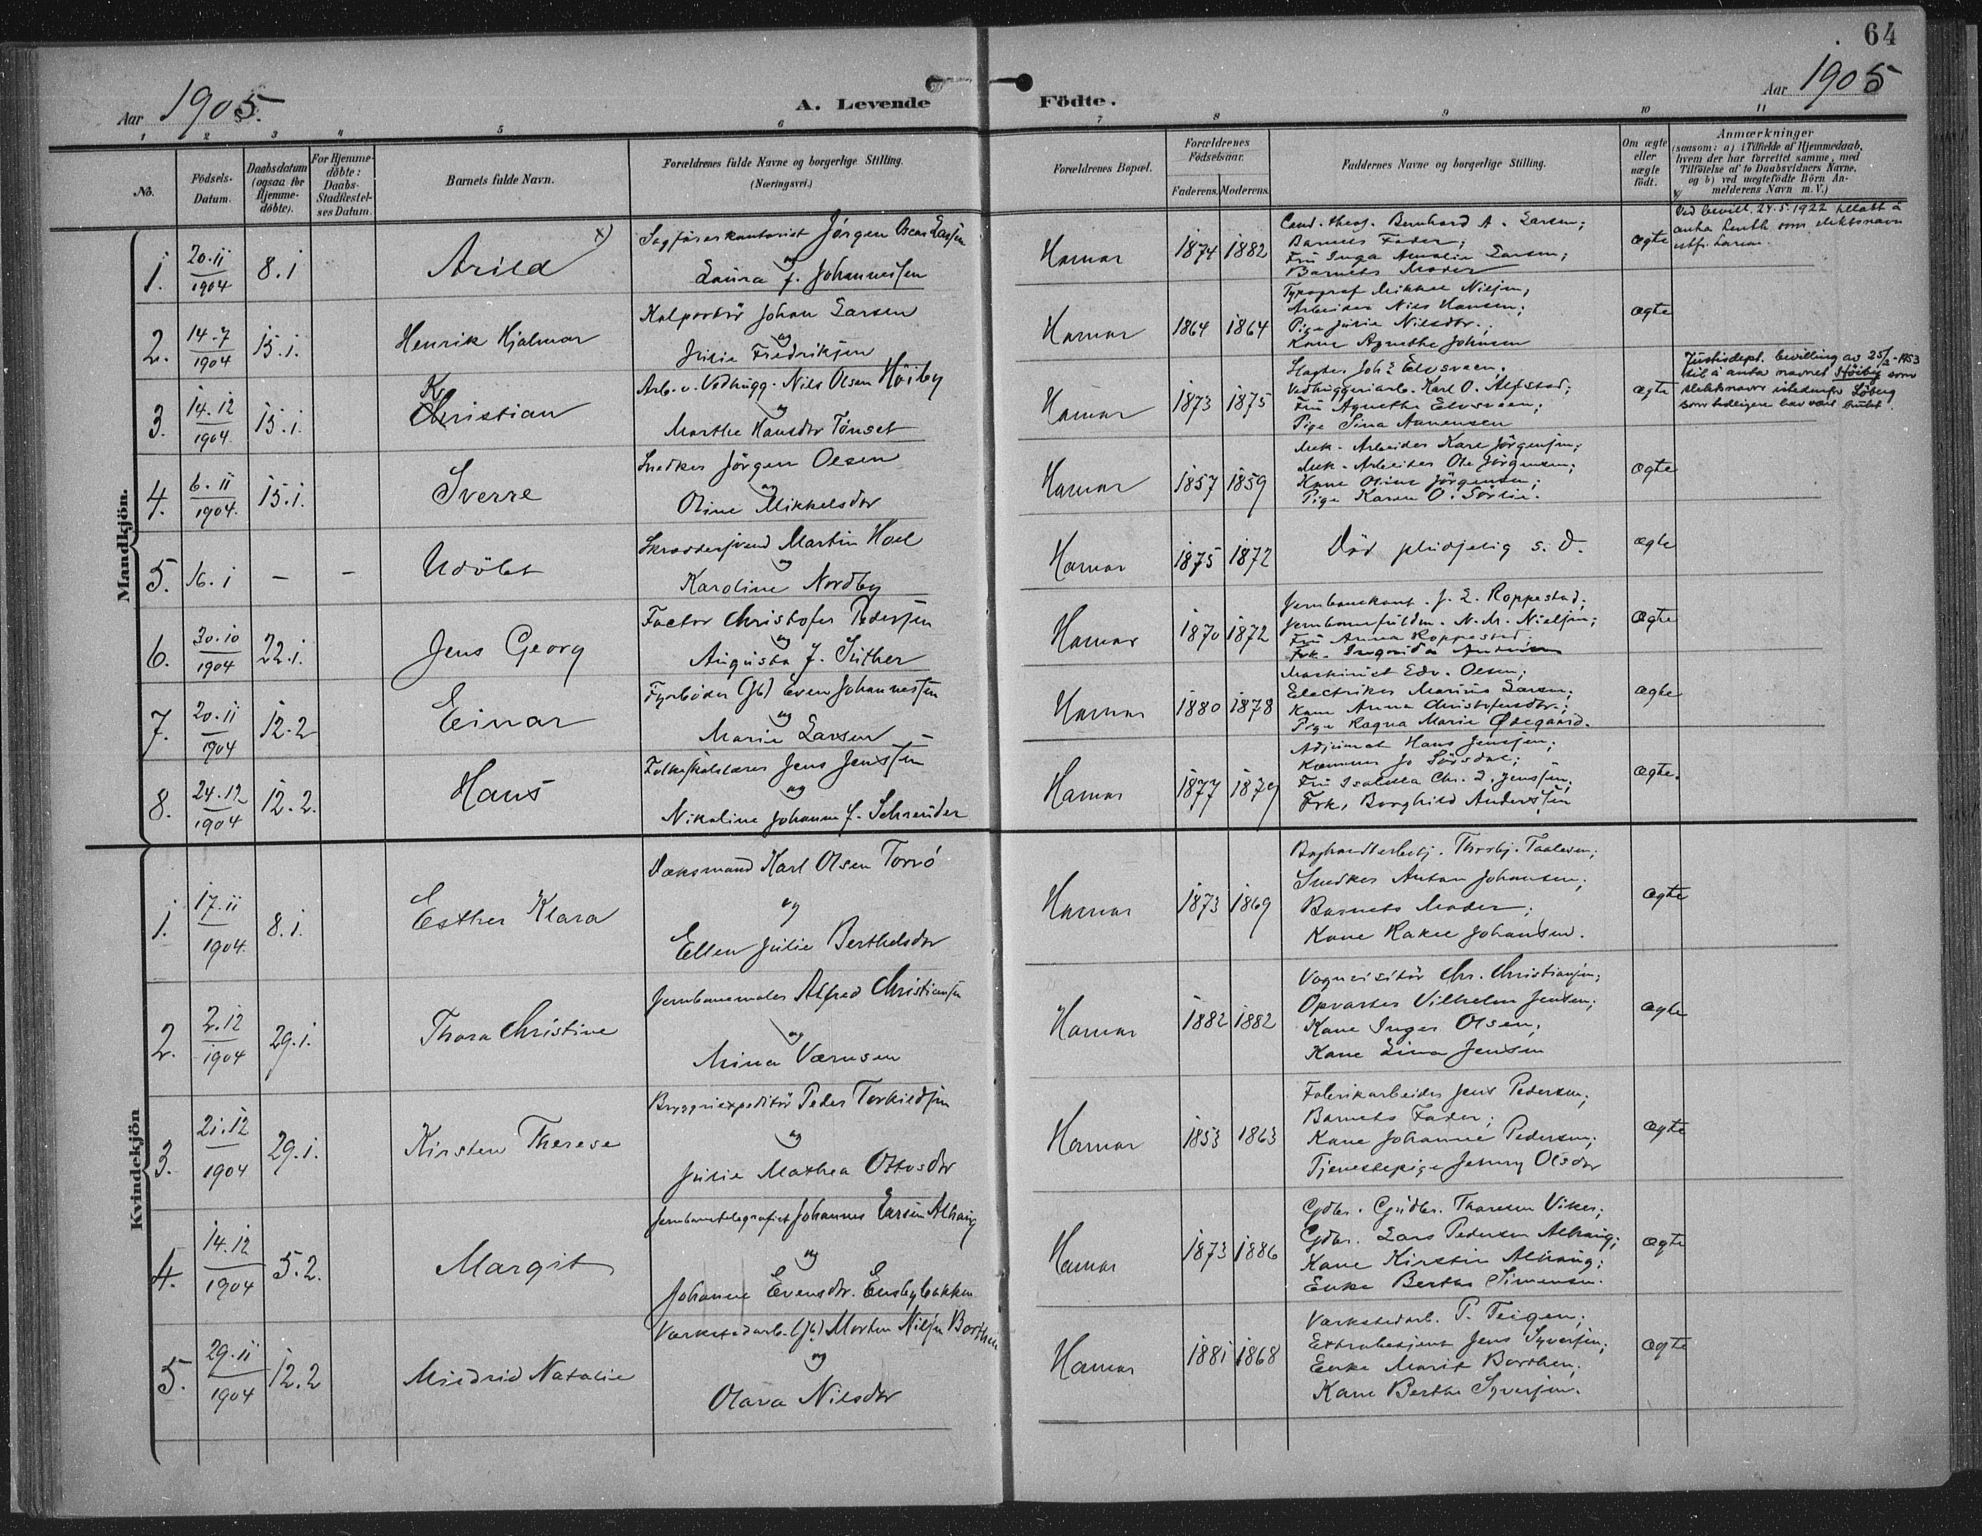 64
Aar 1905. A. Levende Födte. Aar 1905
1 2 3 4 5 6 7 8 9 10 11
No.
Födsels-Datum.
Daabsdatum (ogsaa for Hjemme-döbte).
For Hjemme-döbte: Daabs-Stadfæstel-ses Datum.
Barnets fulde Navn.
Forældrenes fulde Navne og borgerlige Stilling.
(Næringsvei.)
Forældrenes Bopæl.
Forældrenes Födselsaar.
Faderens. Moderens.
Faddernes Navne og borgerlige Stilling.
Om ægte eller uægte födt.
Anmærkninger
(saasom: a) i Tilfælde af Hjemmedaab, hvem der har forrettet samme, med Tilföielse af to Daabsvidners Navne, og b) ved uægtefödte Börn Anmelderens Navn m. V.)
Mandkjön.
1. 20.11 1904 8.1 Arild x)
Sagförerkontorist Jörgen Oscar Larsen
og
Laura J. Johannessen
Hamar 1874 1882
Cand. theol. Bernhard A. Larsen;
Barnets Fader;
Fru Inga Amalia Larsen;
Barnets Moder
ægte
x) Ved bevill. 24.5.1922 tillatt å
anta som slektsnavn
istf. Larsen.
2. 14.7 1904 15.1. Henrik Hjalmar
Kolportör Johan Larsen
og
Julie Fredriksen
Hamar 1864 1864
Typograf Mikkel Nilsen;
Arbeider Nils Hansen;
Pige Julie Nilsdtr.;
Kone Agnethe Johnsen
ægte
3. 14.12 1904. 15.1. Kristian
Arb. v. Vedhugg. Nils Olsen Höiby
og
Marthe Hansdtr Tönset
Hamar 1873 1875
Slagter Joh: Elvsveen;
Vedhuggeriarb. Karl O. Alfstad;
Fru Agnethe Elvsveen;
Pige Sina Annensen
ægte
Justisdept. bevilling av 25/3-1953
til å anta navnet Höiby som
slektsnavn istedenfor Löberg
som tidligere har vært brukt.
4. 6.11 1904. 15.1. Sverre
Snedker Jörgen Olsen
og
Oline Mikkelsdtr
Hamar 1857 1859
Mek. Arbeider Karl Jörgensen;
Mek. Arbeider Ole Jörgensen;
Kone Oline Jörgensen;
Pige Karen O. Sörlie.
ægte
5. 16.1 – – Udöbt
Skræddersvend Martin Hoel
og
Karoline Nordby
Hamar 1875 1872
Död s. D.
ægte
6. 30.10 1904 22.1. Jens Georg
Factor Christofer Pedersen
og
Augusta J. Suther
Hamar 1870 1872
Jernbanekont. J. L. Roppestad;
Jernbanefuldm. N. M. Nielsen;
Fru Anna Roppestad;
Frk. Ingrida
ægte
7. 20.11 1904 12.2 Einar
Fyrböder (Jb) Even Johannessen
og
Marie Larsen
Hamar 1880 1878
Maskinist Edv. Olsen;
Electriker Marius Larsen;
Kone Anna Christofersdtr.;
Pige Ragna Marie Ödegaard.
ægte
8. 24.12 1904 12.2. Hans
Folkeskolelærer Jens Jenssen
og
Nikoline Johanne J. Schröuder
Hamar 1877 1879
Adjunct Hans Jenssen;
Kæmner Jo Sörsdal;
Fru Isabella Chr. D. Jenssen;
Frk. Borghild Anderssen
ægte.
Kvindekjön
1. 17.11 1904. 8.1. Esther Klara
Vaksmand Karl Olsen Torvö
og
Ellen Julie Berthelsdtr
Hamar 1873 1869
Thorbj. Taalesen;
Snedker Anton Johansen;
Barnets Moder;
Kone Rakel Johansen.
ægte
2. 2.12 1904 29.1. Thora Christine
Jernbanemaler Alfred Christiansen
og
Mina Værnsen
Hamar 1882 1882
Vognvisitör Chr. Christiansen;
Opvarter Vilhelm Jensen;
Kone Inger Olsen;
Kone Lina Jensen
ægte
3. 21.12 1904 29.1. Kirsten Therese
Bryggeriexpeditör Peder Torkildsen
og
Julie Mathea Ottosdtr
Hamar 1853 1863
Fabrikarbeider Jens Pedersen;
Barnets Fader;
Kone Johanne Pedersen;
Tjenestepige Jenny Olsdtr
ægte
4. 14.12 1904 5.2. Margit
Jernbanetelegrafist Johannes Larsen Alhaug
og
Johanne Evensdtr. Ensbybakken
Hamar 1873 1886
Gdbr. Gudbr. Thoresen Viker;
Gdbr. Lars Pedersen Alhaug;
Kone Kirstin Alhaug;
Enke Berthe Simensen.
ægte
5. 29.11 1904 12.2 Mildrid Natalie
Værkstedarb. (Jb) Morten Nilsen Borthen
og
Olava Nilsdtr
Hamar 1881 1868
Værkstedarb. P. Teigen;
Extrabetjent Jens Syversen;
Enke Marit Borthen;
Kone Berthe Syversen.
ægte